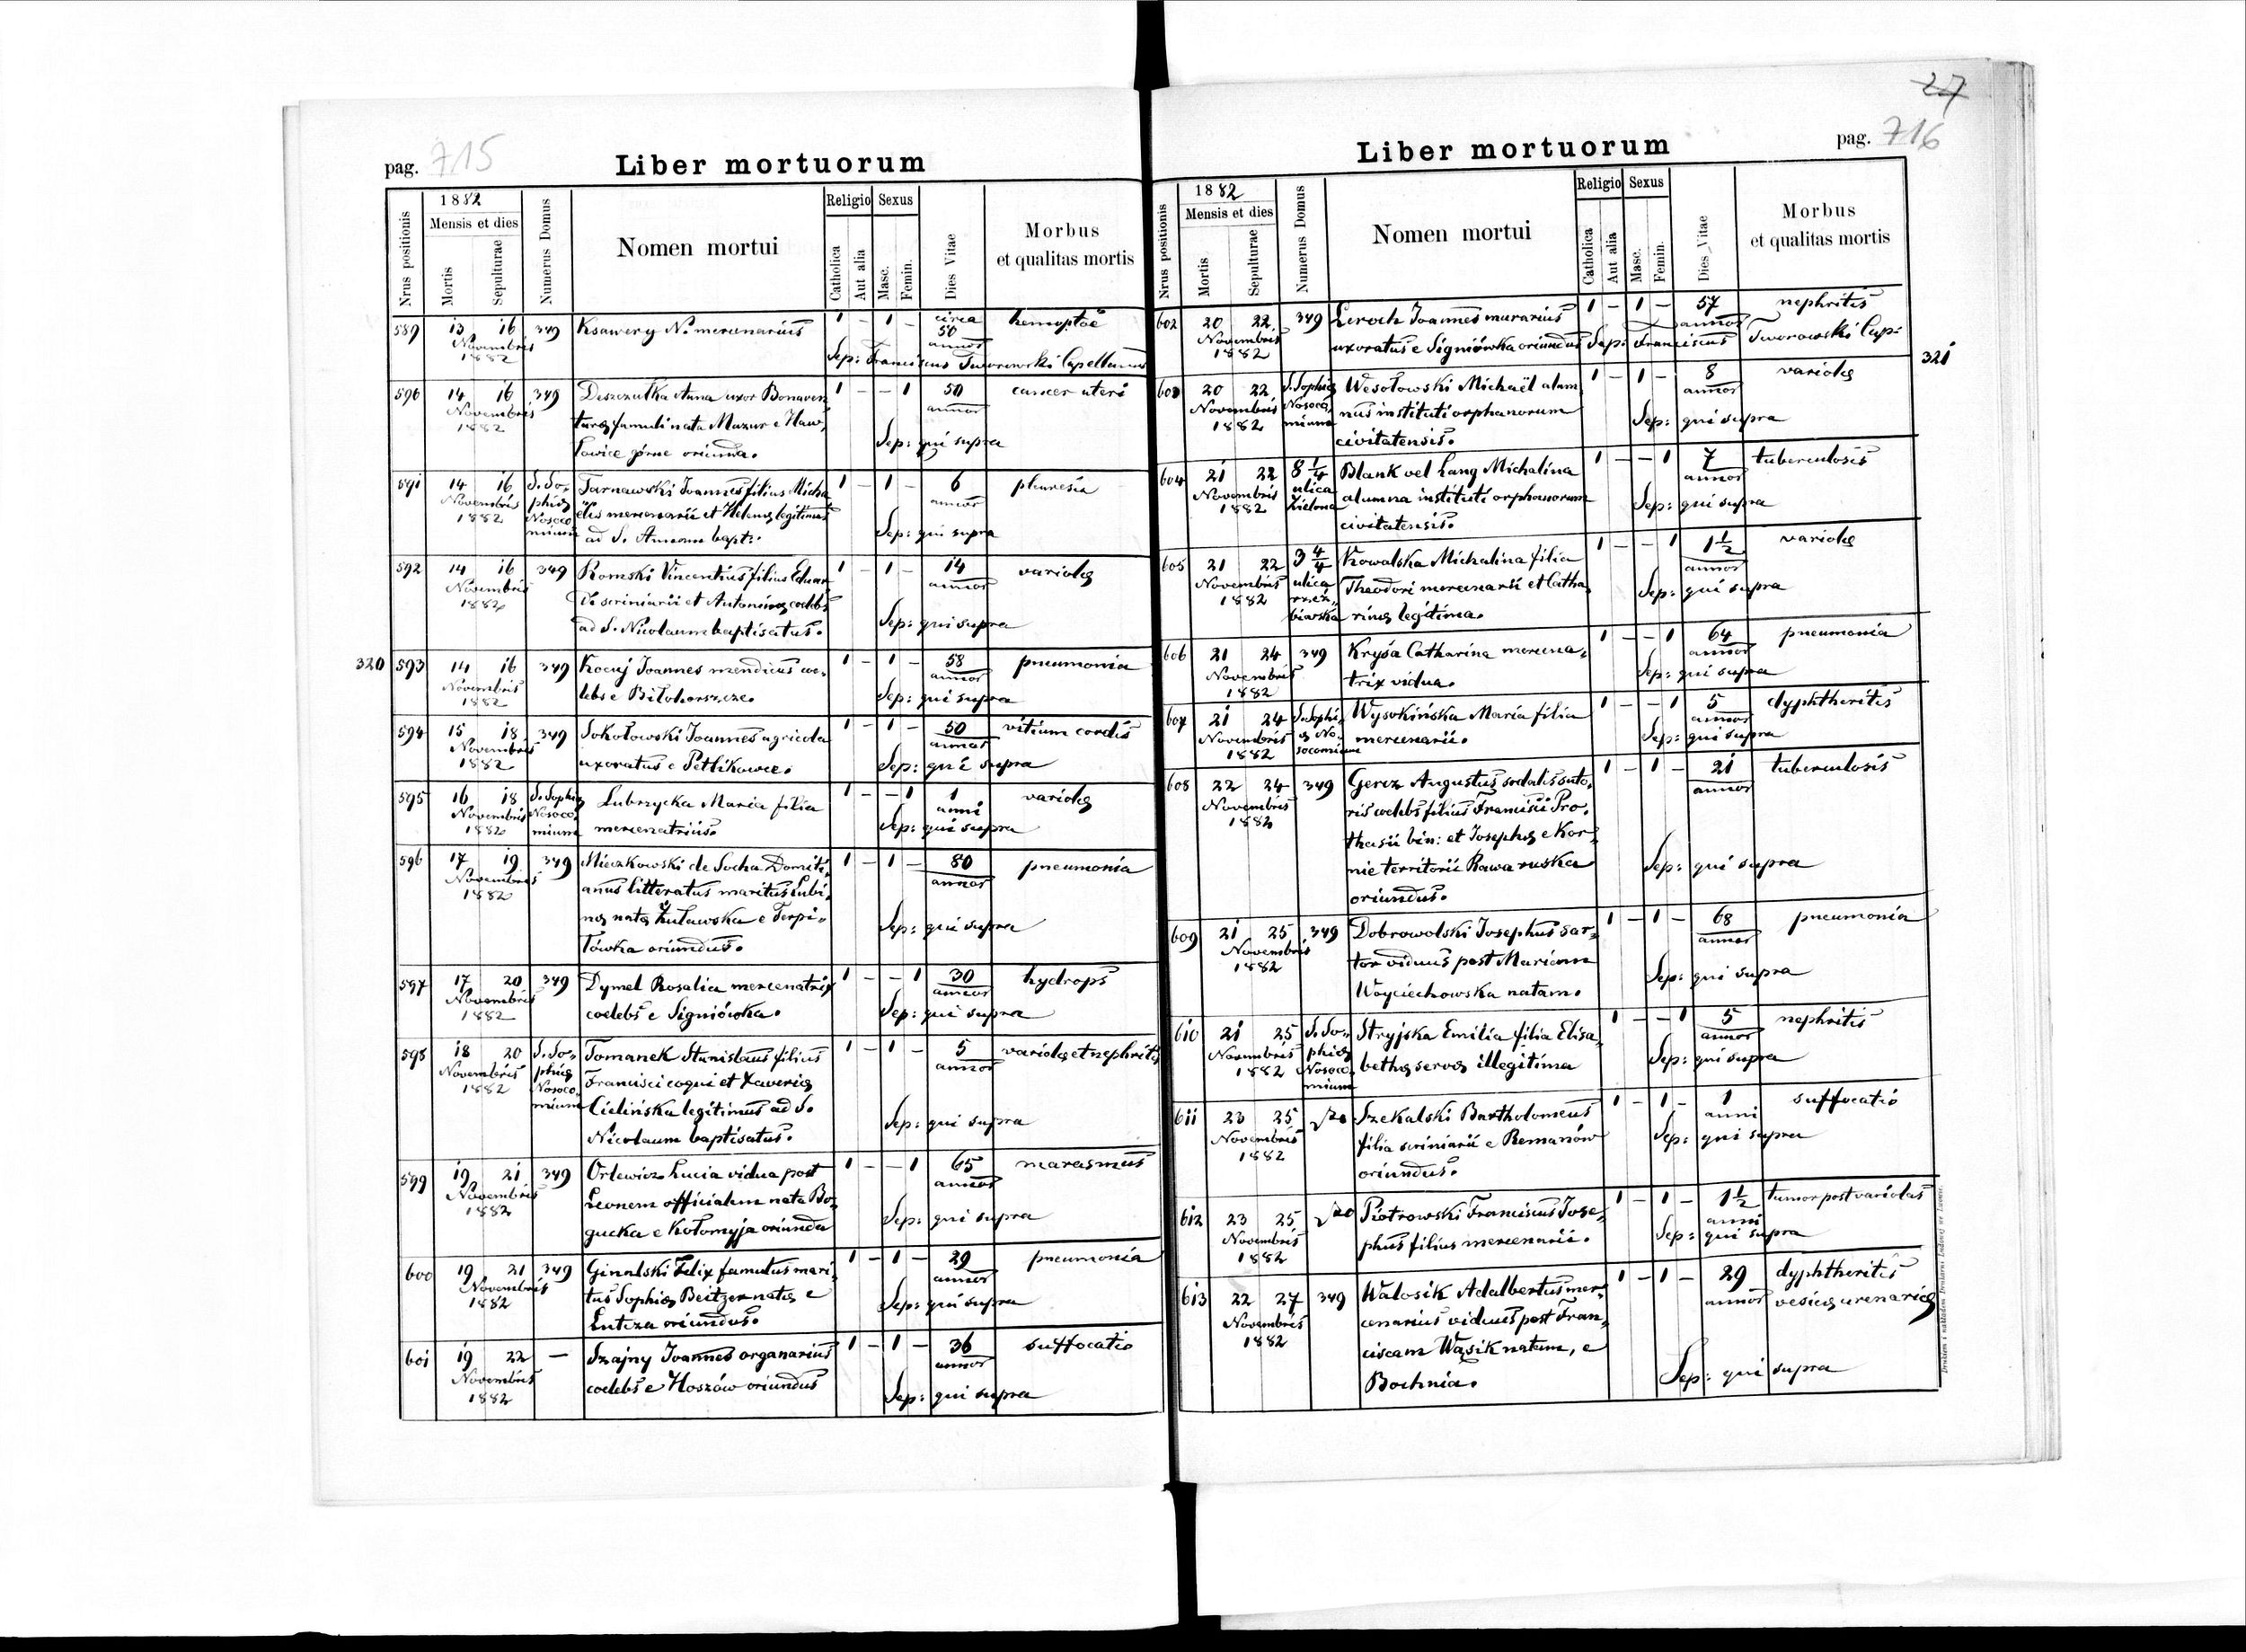 27
pag. 715
Liber mortuorum
Nrus positionis
1882
Mensis et dies
Mortis
Sepulturae
Numerus Domus
Nomen mortui
Religio
Catholica
Aut alia
Sexus
Masc.
Femin.
Dies Vitae
Morbus
et qualitas mortis
589 13 16 349 Ksawery N. mercenarius 1 - 1 - circa 50 annos hemoptoe
Novembris
1882
Sep: Franciscus Tworowski Capellanus
590 14 16 349 Deszczułka Anna uxor Bonaven, 1 - - 1 50 annos cancer uteri
Novembris turae famuli nata Mazur e Haw,
1882 łowice górne oriunda. Sep: qui supra
591 14 16 S. So- Tarnawski Joannes filius Micha 1 - 1 - 6 annos pleuresia
Novembris phiae elis mercenarii et Helenae legitimus
1882 Nosoco
minum ad S. Annam bapt: Sep: qui supra
592 14 16 349 Romski Vincentius filius Eduar 1 - 1 - 14 annos variolae
Novembris di scriniarii et Antoninae coelebs
1882 ad S. Nicolaum baptisatus. Sep: qui supra
320 593 14 16 349 Kocuj Joannes mendicus coe- 1 - 1 - 58 annos pneumonia
Novembris
1882 lebs e Biłohorszcze. Sep: qui supra
594 15 18 349 Sokołowski Joannes agricola 1 - 1 - 50 annos vitium cordis
Novembris
1882 uxoratus e Petlikowce. Sep: qui supra
595 16 18 S. Sophiae Lubrzycka Maria filia 1 - - 1 1 anni variolae
Novembris Nosoco
1882 minum mercenatricis. Sep: qui supra
596 17 19 349 Mieczkowski de Socha Domiti, 1 - 1 - 80 annos pneumonia
Novembris anus litteratus maritus Lubi,
1882 nae natae Żuławska e Terpi,, Sep: qui supra
łówka oriundus.
597 17 20 349 Dymel Rosalia mercenatrix 1 - - 1 30 annos hydrops
Novembris
1882 coelebs e Signiówka. Sep: qui supra
598 18 20 S. So- Tomanek Stanislaus filius 1 - 1 - 5 annos variolae et nephritis
Novembris phiae Francisci coqui et Xaveriae
1882 Nosoco
minum Cielińska legitimus ad S. Sep: qui supra
Nicolaum baptisatus.
599 19 21 349 Orlewicz Lucia vidua post 1 - - 1 65 annos marasmus
Novembris Leonem officialem nata Bo-
1882 gucka e Kołomyja oriunda Sep: qui supra
600 19 21 349 Ginalski Felix famulus mari 1 - 1 - 29 annos pneumonia
Novembris tus Sophiae Beitzer natae e
1882 Lutcza oriundus. Sep: qui supra
601 19 22 — Szajny Joannes organarius 1 - 1 - 36 annos suffocatio
Novembris
1882 coelebs e Hoszów oriundus Sep: qui supra
pag. 716
Liber mortuorum
Nrus positionis
1882
Mensis et dies
Mortis
Sepulturae
Numerus Domus
Nomen mortui
Religio
Catholica
Aut alia
Sexus
Masc.
Femin.
Dies Vitae
Morbus
et qualitas mortis
602 20 22 349 Leroch Joannes murarius 1 - 1 - 57 annos nephritis
Novembris
1882 uxoratus e Signiówka oriundus Sep: Franciscus Tworowski Cap:
321
603 20 22 S. Sophiae Wesołowski Michaël alum 1 - 1 - 8 annos variolae
Novembris Nosoco, nus instituti orphanorum
1882 minum civitatensis. Sep: qui supra
604 21 22 8 1/4 Blank vel Lang Michalina 1 - - 1 7 annos tuberculosis
Novembris ulica alumna instituti orphanorum
1882 Zielona civitatensis. Sep: qui supra
605 21 22 3 4/4 Kowalska Michalina filia 1 - - 1 1 1/2 annos variolae
Novembris ulica Theodori mercenarii et Catha,
1882 rzeź,,
biarska rinae legitima. Sep: qui supra
606 21 24 349 Krysa Catharina mercena, 1 - - 1 64 annos pneumonia
Novembris
1882 trix vidua. Sep: qui supra
607 21 24 S. Sophi, Wysokińska Maria filia 1 - - 1 5 annos dyphtheritis
Novembris ae No,
1882 socomium mercenarii. Sep: qui supra
608 22 24 349 Gercz Augustus sodalis suto, 1 - 1 - 21 annos tuberculosis
Novembris ris coelebs filius Francisci Pro,
1882 thasii bin: et Josephae e Kor-
nie territorii Rawa ruska Sep: qui supra
oriundus.
609 21 25 349 Dobrowolski Josephus sar- 1 - 1 - 68 annos pneumonia
Novembris tor viduus post Mariam
1882 Woyciechowska natam. Sep: qui supra
610 21 25 S. So,, Stryjska Emilia filia Elisa, 1 - - 1 5 annos nephritis
Novembris phiae
1882 Nosoco,
minum bethae servae illegitima Sep: qui supra
611 23 25 Szekalski Bartholomeus 1 - 1 - 1 anni suffocatio
Novembris filia scriniarii e Remanów
1882 oriundus. Sep: qui supra
612 23 25 Piotrowski Franciscus Jose, 1 - 1 - 1 1/2 anni tumor post variolas
Novembris
1882 phus filius mercenarii. Sep: qui supra
613 22 27 349 Walosik Adalbertus mer- 1 - 1 - 29 annos dyphtheritis
Novembris cenarius viduus post Fran, vesicae urenariae
1882 ciscam Wąsik natam, e
Bochnia. Sep: qui supra